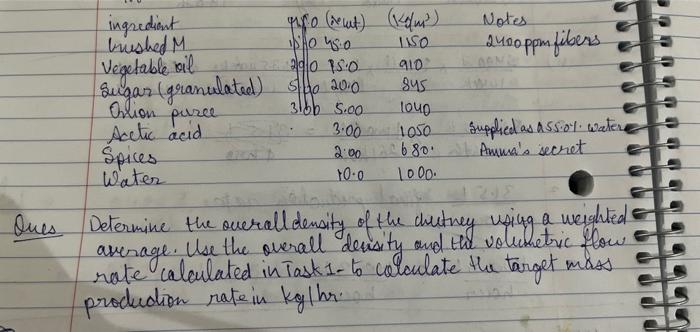 ingredient (%wt) (Kg/m³) Notes
Crushed M 45.0 1150 2400 ppm fibers
Vegetable oil 15.0 910
Sugar (granulated) 20.0 845
Onion puree 5.00 1040
Acetic acid 3.00 1050 Supplied as a 55.0%. water
Spices 2.00 680. Amma's secret
Water 10.0 1000.
Ques Determine the overall density of the chutney using a weighted
average. Use the overall density and the volumetric flow
rate calculated in Task 1 - to calculate the target mass
production rate in kg/hr.